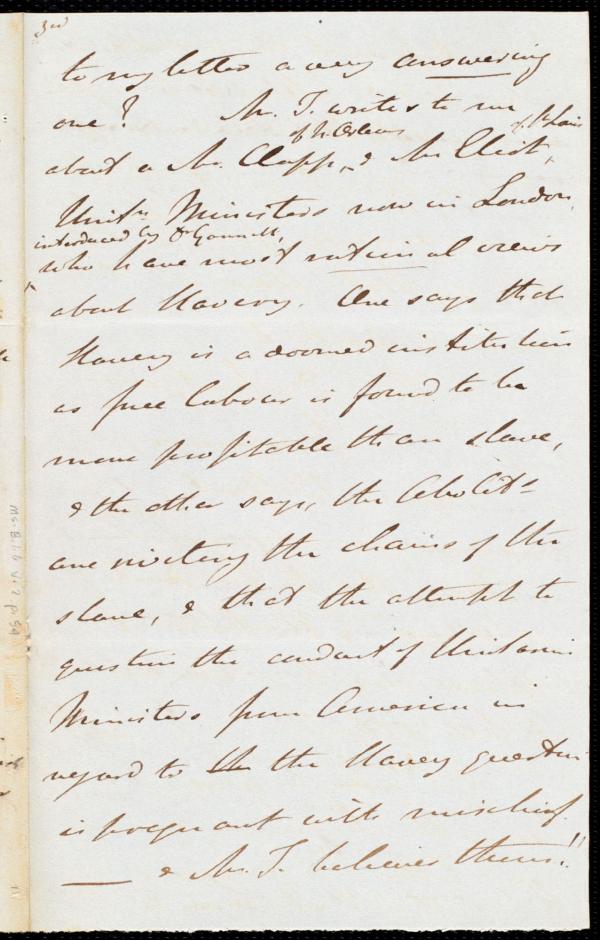 3rd
to my letter a very answering
one? Mr. T. writes to me
about a Mr. Clapp, of N. Orleans & Mr Eliot, of St. Louis
Unitn Ministers now in London,
introduced by Dr Gannett,
who have most rational views
about slavery. One says that
slavery is a doomed institution
as free labour is found to be
more profitable than slave,
& the other says, the Abolits
are riveting the chains of the
slave, & that the attempt to
question the conduct of Unitarian
Ministers from America in
regard to the the slavery question
is pregnant with mischief.
— & Mr. T. believes them!!
Ms. B. 1.6 v. 2 p. 59